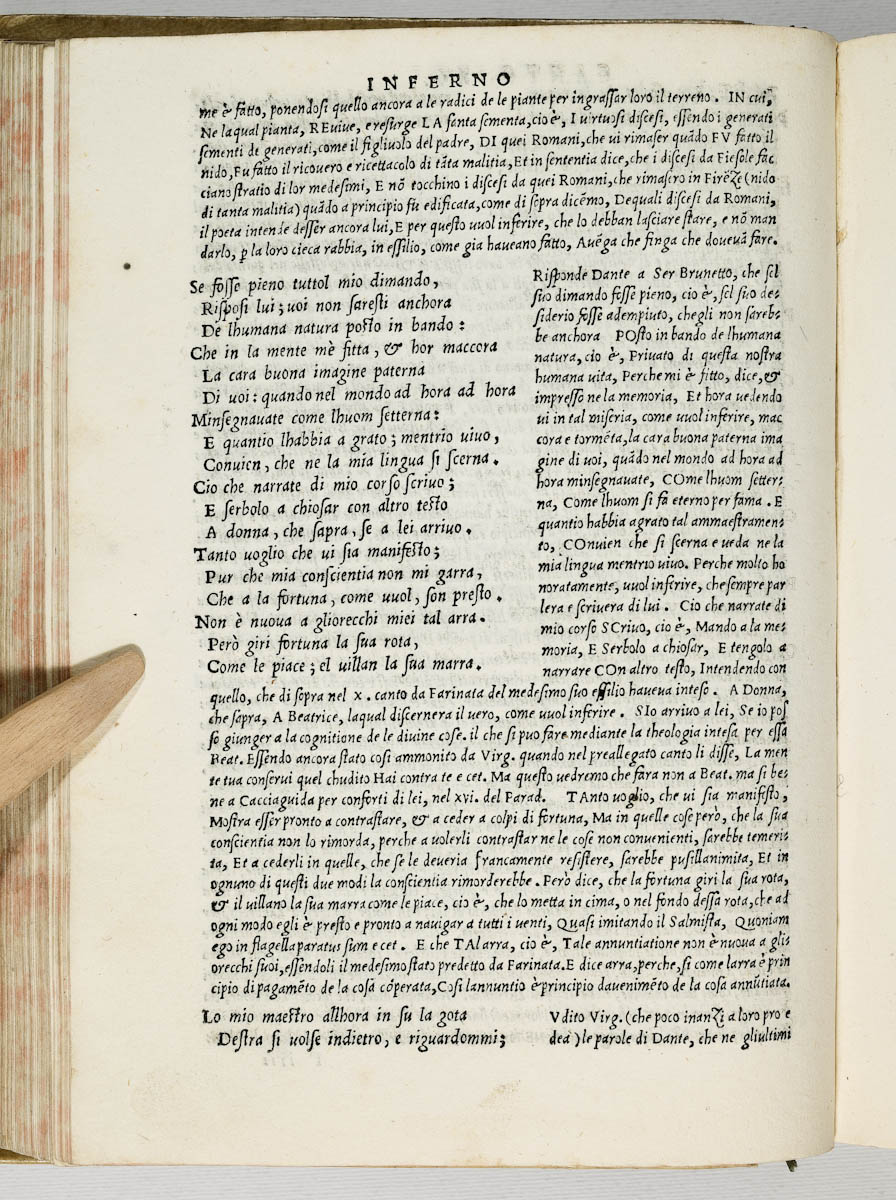 INFERNO
me è fatto, ponendosi quello ancora a le radici de le piante per ingrassar loro il terreno. IN cui,
Ne laqual pianta, REuiue, e resurge LA santa sementa, cio è, I uirtuosi discesi, essendo i generati
sementi de generati, come il figliuolo del padre, DI quei Romani, che ui rimaser quãdo FV fatto il
nido, Fu fatto il ricouero e ricettacolo di tãta malitia, Et in sententia dice, che i discesi da Fiesole fac
ciano stratio di lor medesimi, E nõ tocchino i discesi da quei Romani, che rimasero in Firẽze (nido
di tanta malitia) quãdo a principio fu edificata, come di sopra dicẽmo, De quali discesi da Romani,
il poeta intende desser ancora lui, E per questo uuol inferire, che lo debban lasciare stare, e nõ man
darlo, ꝑ la loro cieca rabbia, in essilio, come gia haueano fatto, Auẽga che finga che doueuã fare.
Se fosse pieno tuttol mio dimando,
Risposi lui; uoi non saresti anchora
De lhumana natura posto in bando:
Che in la mente mè fitta, & hor maccora
La cara buona imagine paterna
Di uoi: quando nel mondo ad hora ad hora
Minsegnauate come lhuom setterna:
E quantio lhabbia a grato; mentrio uiuo,
Conuien, che ne la mia lingua si scerna.
Cio che narrate di mio corso scriuo;
E serbolo a chiosar con altro testo
A donna, che sapra, se a lei arriuo.
Tanto uoglio che ui sia manifesto;
Pur che mia conscientia non mi garra,
Che a la fortuna, come uuol, son presto.
Non è nuoua a gliorecchi miei tal arra.
Però giri fortuna la sua rota,
Come le piace; el uillan la sua marra.
Risponde Dante a Ser Brunetto, che sel
suo dimando fosse pieno, cio è, sel suo de-
siderio fosse adempiuto, chegli non sareb-
be anchora POsto in bando de lhumana
natura, cio è, Priuato di questa nostra
humana uita, Perche mi è fitto, dice, &
impresso ne la memoria, Et hora uedendo
ui in tal miseria, come uuol inferire, mac
cora e tormẽta, la cara buona paterna ima
gine di uoi, quãdo nel mondo ad hora ad
hora minsegnauate, COme lhuom setter-
na, Come lhuom si fa eterno per fama. E
quantio habbia agrato tal ammaestramen-
to, COnuien che si scerna e ueda ne la
mia lingua mentrio uiuo. Perche molto ho
noratamente, uuol inferire, che sempre par
lera e scriuera di lui. Cio che narrate di
mio corso SCriuo, cio è, Mando a la me-
moria, E Serbolo a chiosar, E tengolo a
narrare COn altro testo, Intendendo con
quello, che di sopra nel x. canto da Farinata del medesimo suo essilio haueua inteso. A Donna,
che sapra, A Beatrice, laqual discernera il uero, come uuol inferire. SIo arriuo a lei, Se io pos
so giunger a la cognitione de le diuine cose. il che si puo fare mediante la theologia intesa per essa
Beat. Essendo ancora stato cosi ammonito da Virg. quando nel preallegato canto li disse, La men
te tua conserui quel chudito Hai contra te e cet. Ma questo uedremo che fara non a Beat. ma si be-
ne a Cacciaguida per conforti di lei, nel xvi. del Parad. TAnto uoglio, che ui sia manifesto,
Mostra esser pronto a contrastare, & a ceder a colpi di fortuna, Ma in quelle cose però, che la sua
conscientia non lo rimorda, perche a uolerli contrastar ne le cose non conuenienti, sarebbe temeri-
ta, Et a cederli in quelle, che se le deueria francamente resistere, sarebbe pusillanimita, Et in
ognuno di questi due modi la conscientia rimorderebbe. Però dice, che la fortuna giri la sua rota,
& il uillano la sua marra come le piace, cio è, che lo metta in cima, o nel fondo dessa rota, che ad
ogni modo egli è presto e pronto a nauigar a tutti i uenti, Quasi imitando il Salmista, Quoniam
ego in flagella paratus sum e cet. E che TAl arra, cio è, Tale annuntiatione non è nuoua a gli-
orecchi suoi, essendoli il medesimo stato predetto da Farinata. E dice arra, perche, si come larra è prin
cipio di pagamẽto de la cosa cõperata, Cosi lannuntio è principio dauenimẽto de la cosa annũtiata.
Lo mio maestro allhora in su la gota
Destra si uolse indietro, e riguardommi;
Vdito Virg. (che poco inanzi a loro pro e
dea) le parole di Dante, che ne gliultimi